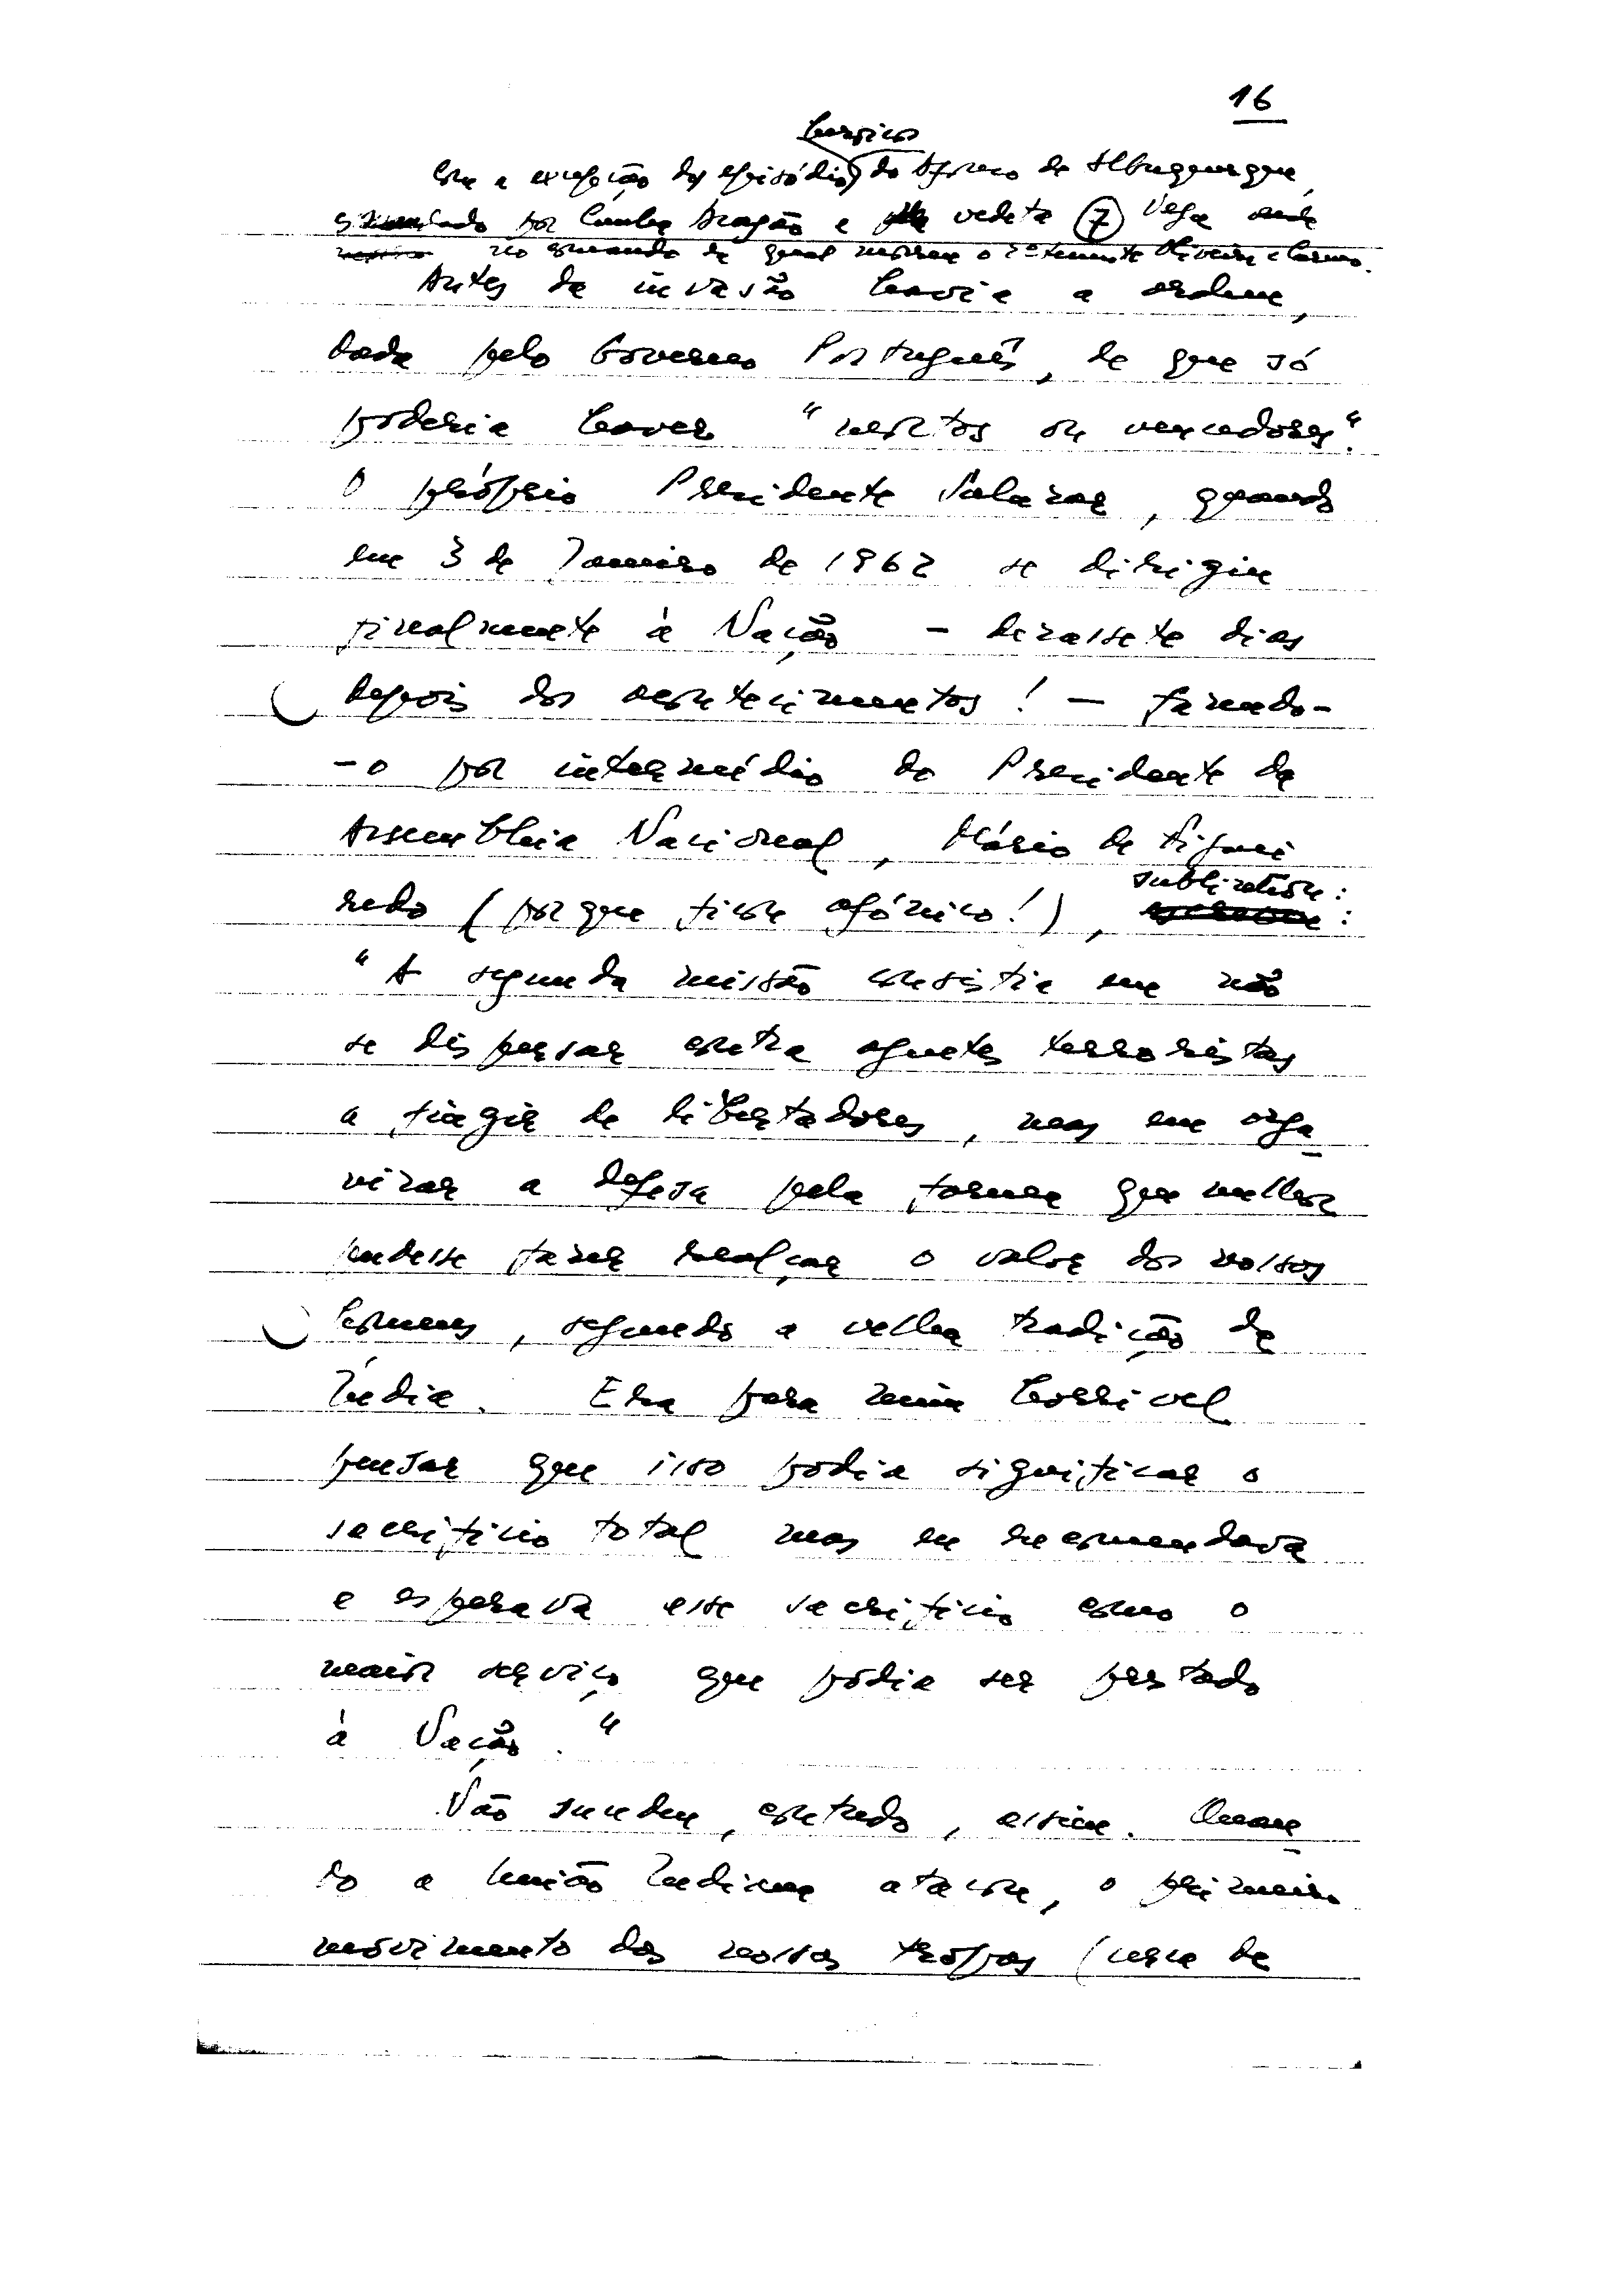 16
heróico
Com a excepção do episódio do Afonso de Albuquerque,
comandado por Cunha Aragão e vedeta 7 Vega
no comando da qual morreu o 2º tenente Oliveira e Carmo.
Antes da invasão havia a ordem,
dada pelo Governo Português, de que só
poderia haver "mortos ou vencedores".
O próprio Presidente Salazar, quando
em 3 de Janeiro de 1962 se dirigiu
finalmente à Nação - dezassete dias
depois dos acontecimentos! - fazendo-
-o por intermédio do Presidente da
Assembleia Nacional, Mário de Figuei
redo (porque ficou afónico!), sublinhou:
"A segunda missão consistia em não
se dispersar contra agentes terroristas
a fingir de libertadores, mas em orga_
nizar a defesa pela forma que melhor
pudesse fazer realçar o valor dos nossos
homens, segundo a velha tradição da
Índia. Era para mim horrível
pensar que isso podia significar o
sacrifício total mas eu recomendava
e esperava esse sacrifício como o
maior serviço que podia ser prestado
à Nação."
Não sucedeu, contudo, assim. Quan_
do a União Indiana atacou, o primeiro
movimento das nossas tropas (cerca de